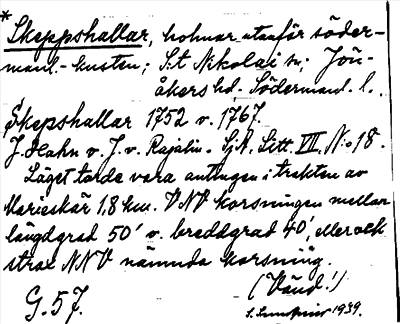 * Skeppshallar, holmar utanför söder-
manl.-kusten; S:t Nikolai sn; Jön-
åkers hd. Södermanl. l.
Skepshallar 1752 o. 1767.
J. Hahn o. J. v. Rajalin. Sj.A. Litt. VII, N:o 18.
Läget torde vara antingen i trakten av
Marieskär 1,8 km. VNV korsningen mellan
längdgrad 50' o. breddgrad 40', eller ock
strax NNV nämnda korsning.
G. 57.
(Vänd!)
1939.